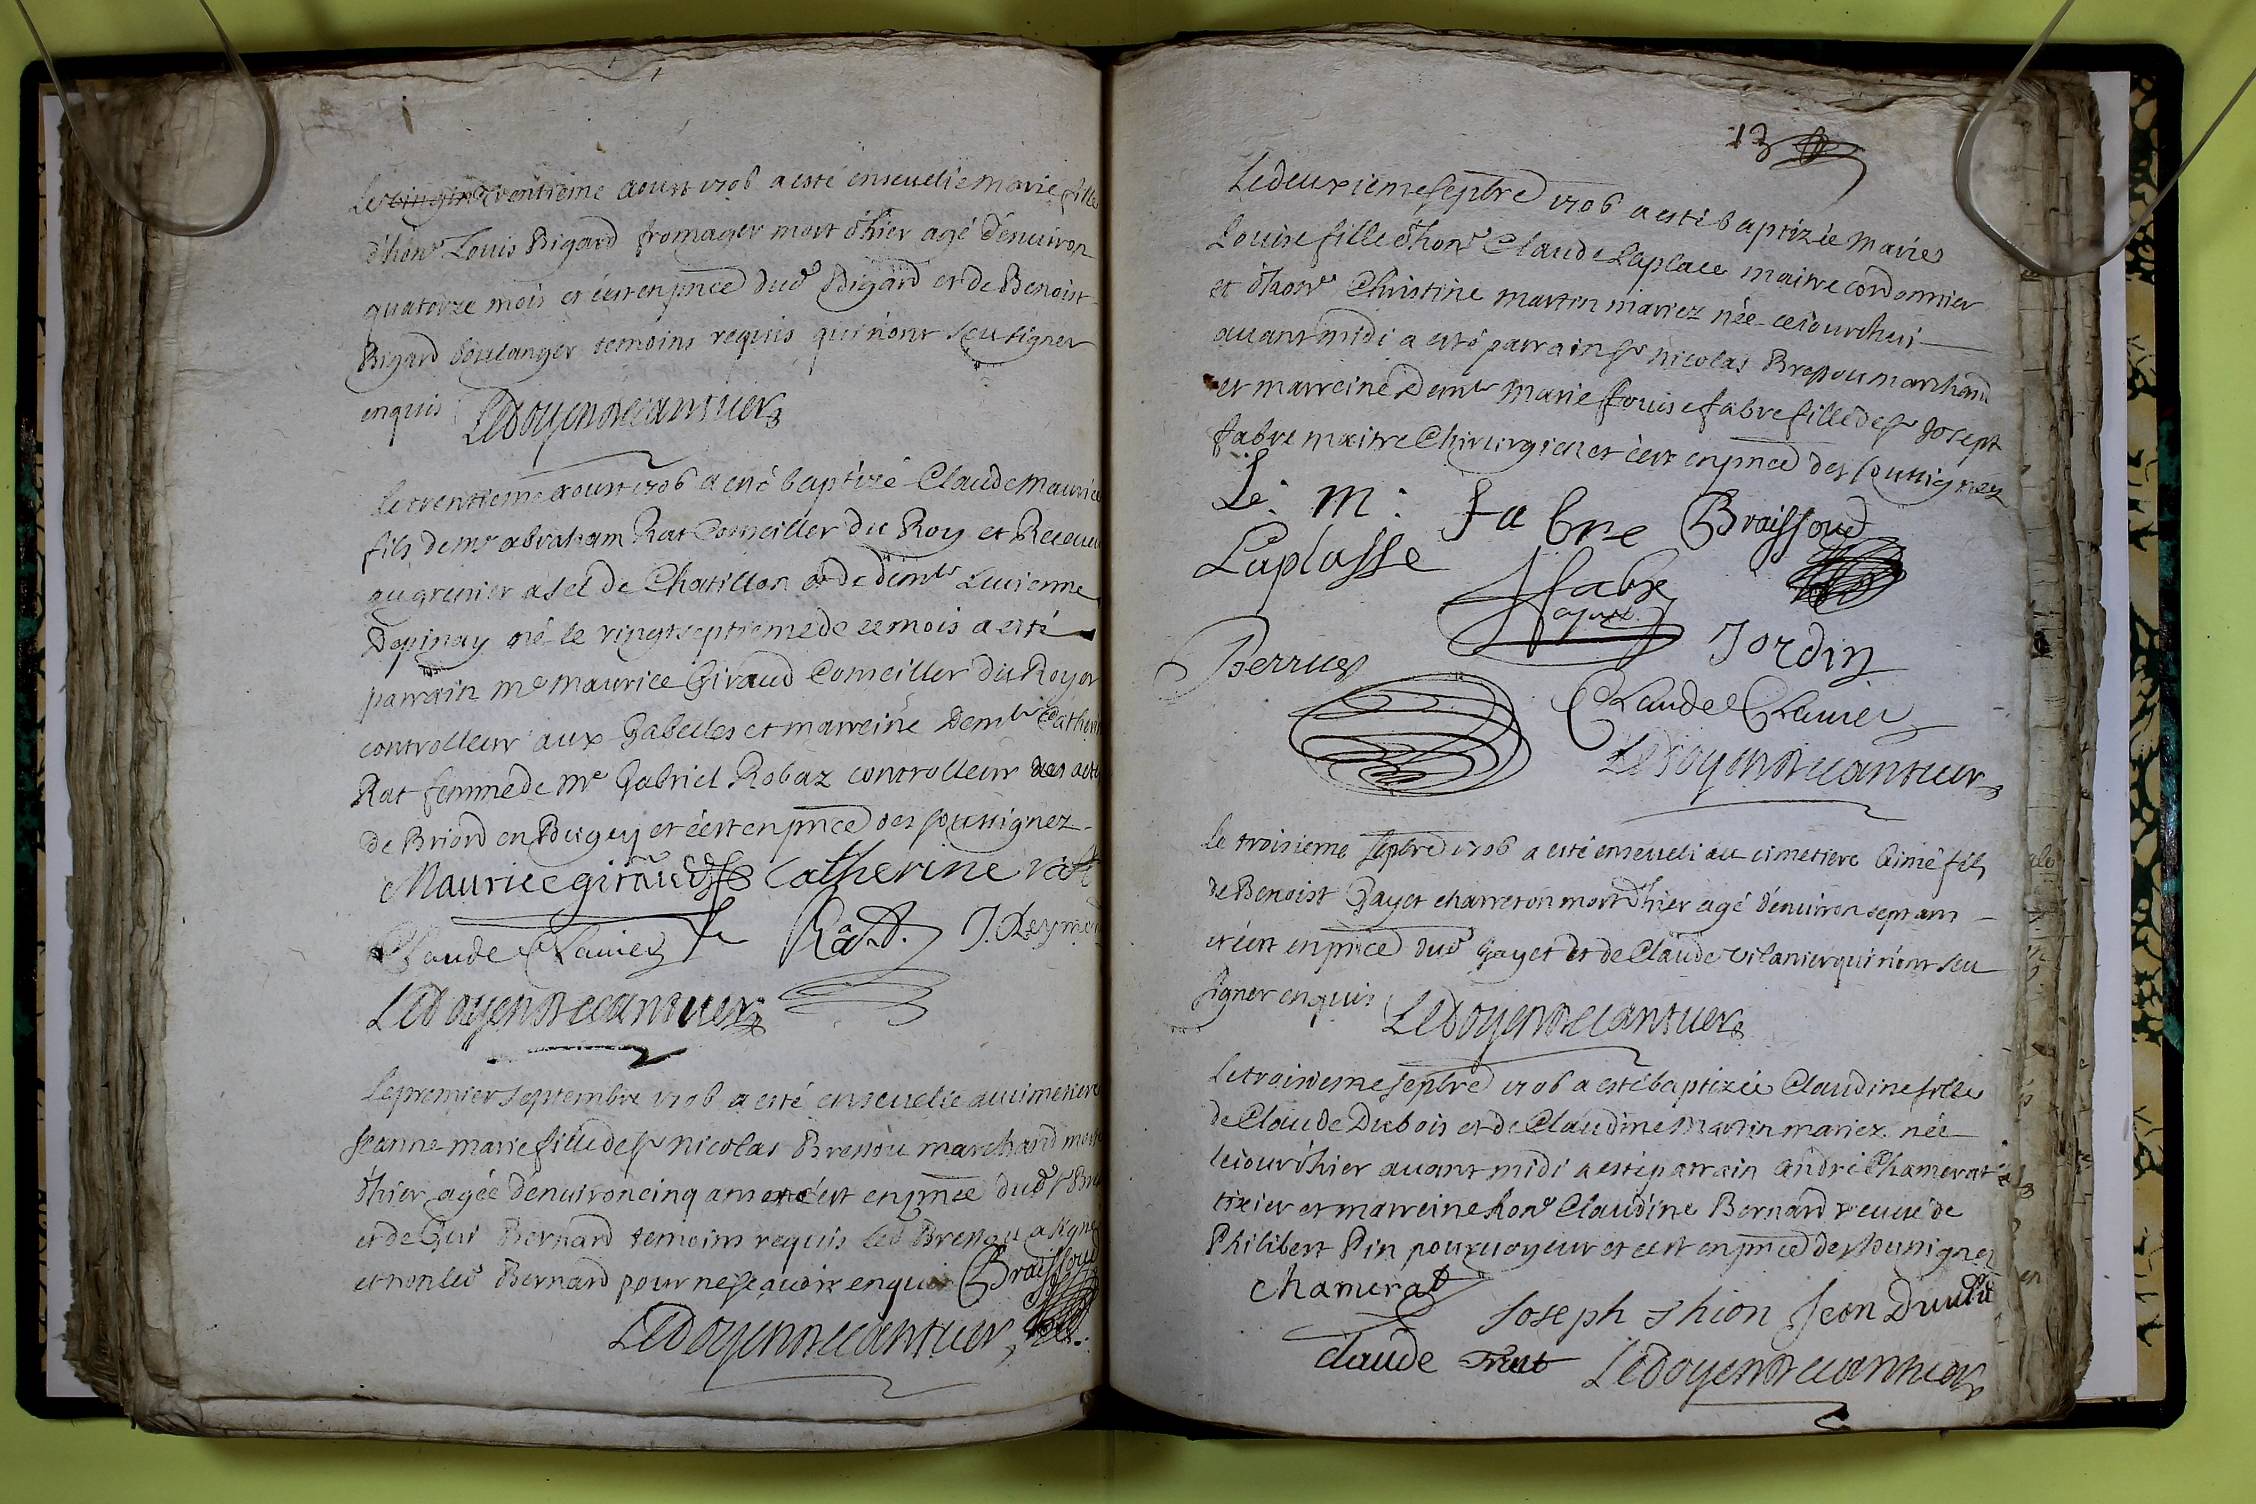 Le trentieme aoust 1706 a esté ensevelie Marie fille
d'hon^e Louis Bigard fromager mort d'hier agé d'environ
quatorze mois et c'est en pnce dud^t Bigard et de Benoist
Bigard boulanger temoins requis qui n'ont sceu signer
enquis
Le trentieme aoust 1706 a esté baptizé Claude Maurice
fils de m^r abraham Rat Conseiller du Roy et Receveur
au grenier a sel de Chatillon et de dem^lle Lucienne
Depinay né le vingt septieme de ce mois a esté
parrain m^e maurice Giraud Conseiller du Roy et
controlleur aux Gabelles et marreine Dem^lle Catherine
Rat femme de M^e Gabriel Robaz controlleur des actes
de Briord en Bugey et c'est en pnce des soussignez
Maurice giraud Catherine rat
Claude Clavier Rat. J. Reymond
Le premier septembre 1706 a esté ensevelie au cimetiere
Jeanne marie fille de s^r Nicolas Bressou marchand morte
d'hier agée d'environ cinq ans et c'est en pnce dud^t s^r
et de Bernard temoins requis led Bressou a signé
et non led^t Bernard pour ne sçavoir enquis Braissoud
13
Le deuxieme septbre 1706 a esté baptizée Marie
Louise fille d'hon^e Claude Laplace maitre cordonnier
et d'hon^e Christine martin mariez née cejourdhui
avant midi a esté parrain s^r Nicolas Bressou marchand
et marreine Dem^lle Marie Louise fabre fille de s^r Joseph
fabre maitre Chirurgien et c'est en pnce des soussignez
L: m: fabre Braissoud
Laplasse fabre
Berruer Jordin
Claude Clavier
le troisieme septbre 1706 a esté enseveli au cimetiere Aimé fils
de Benoist Gayet charreton mort d'hier agé d'environ sept ans
et c'est en pnce dud^t Gayet et de Claude vilanier qui n'ont sceu
signer enquis
Le troisieme septbre 1706 a esté baptizée Claudine fille
de Claude Dubois et de Claudine Martin mariez née
le jour d'hier avant midi a esté parrain andré Chamerat
tixier et marreine hon^e Claudine Bernard veuve de
Philibert Pin pourvoyeur et c'est en pnce des soussignez
chamerat
Joseph thion Jean
claude